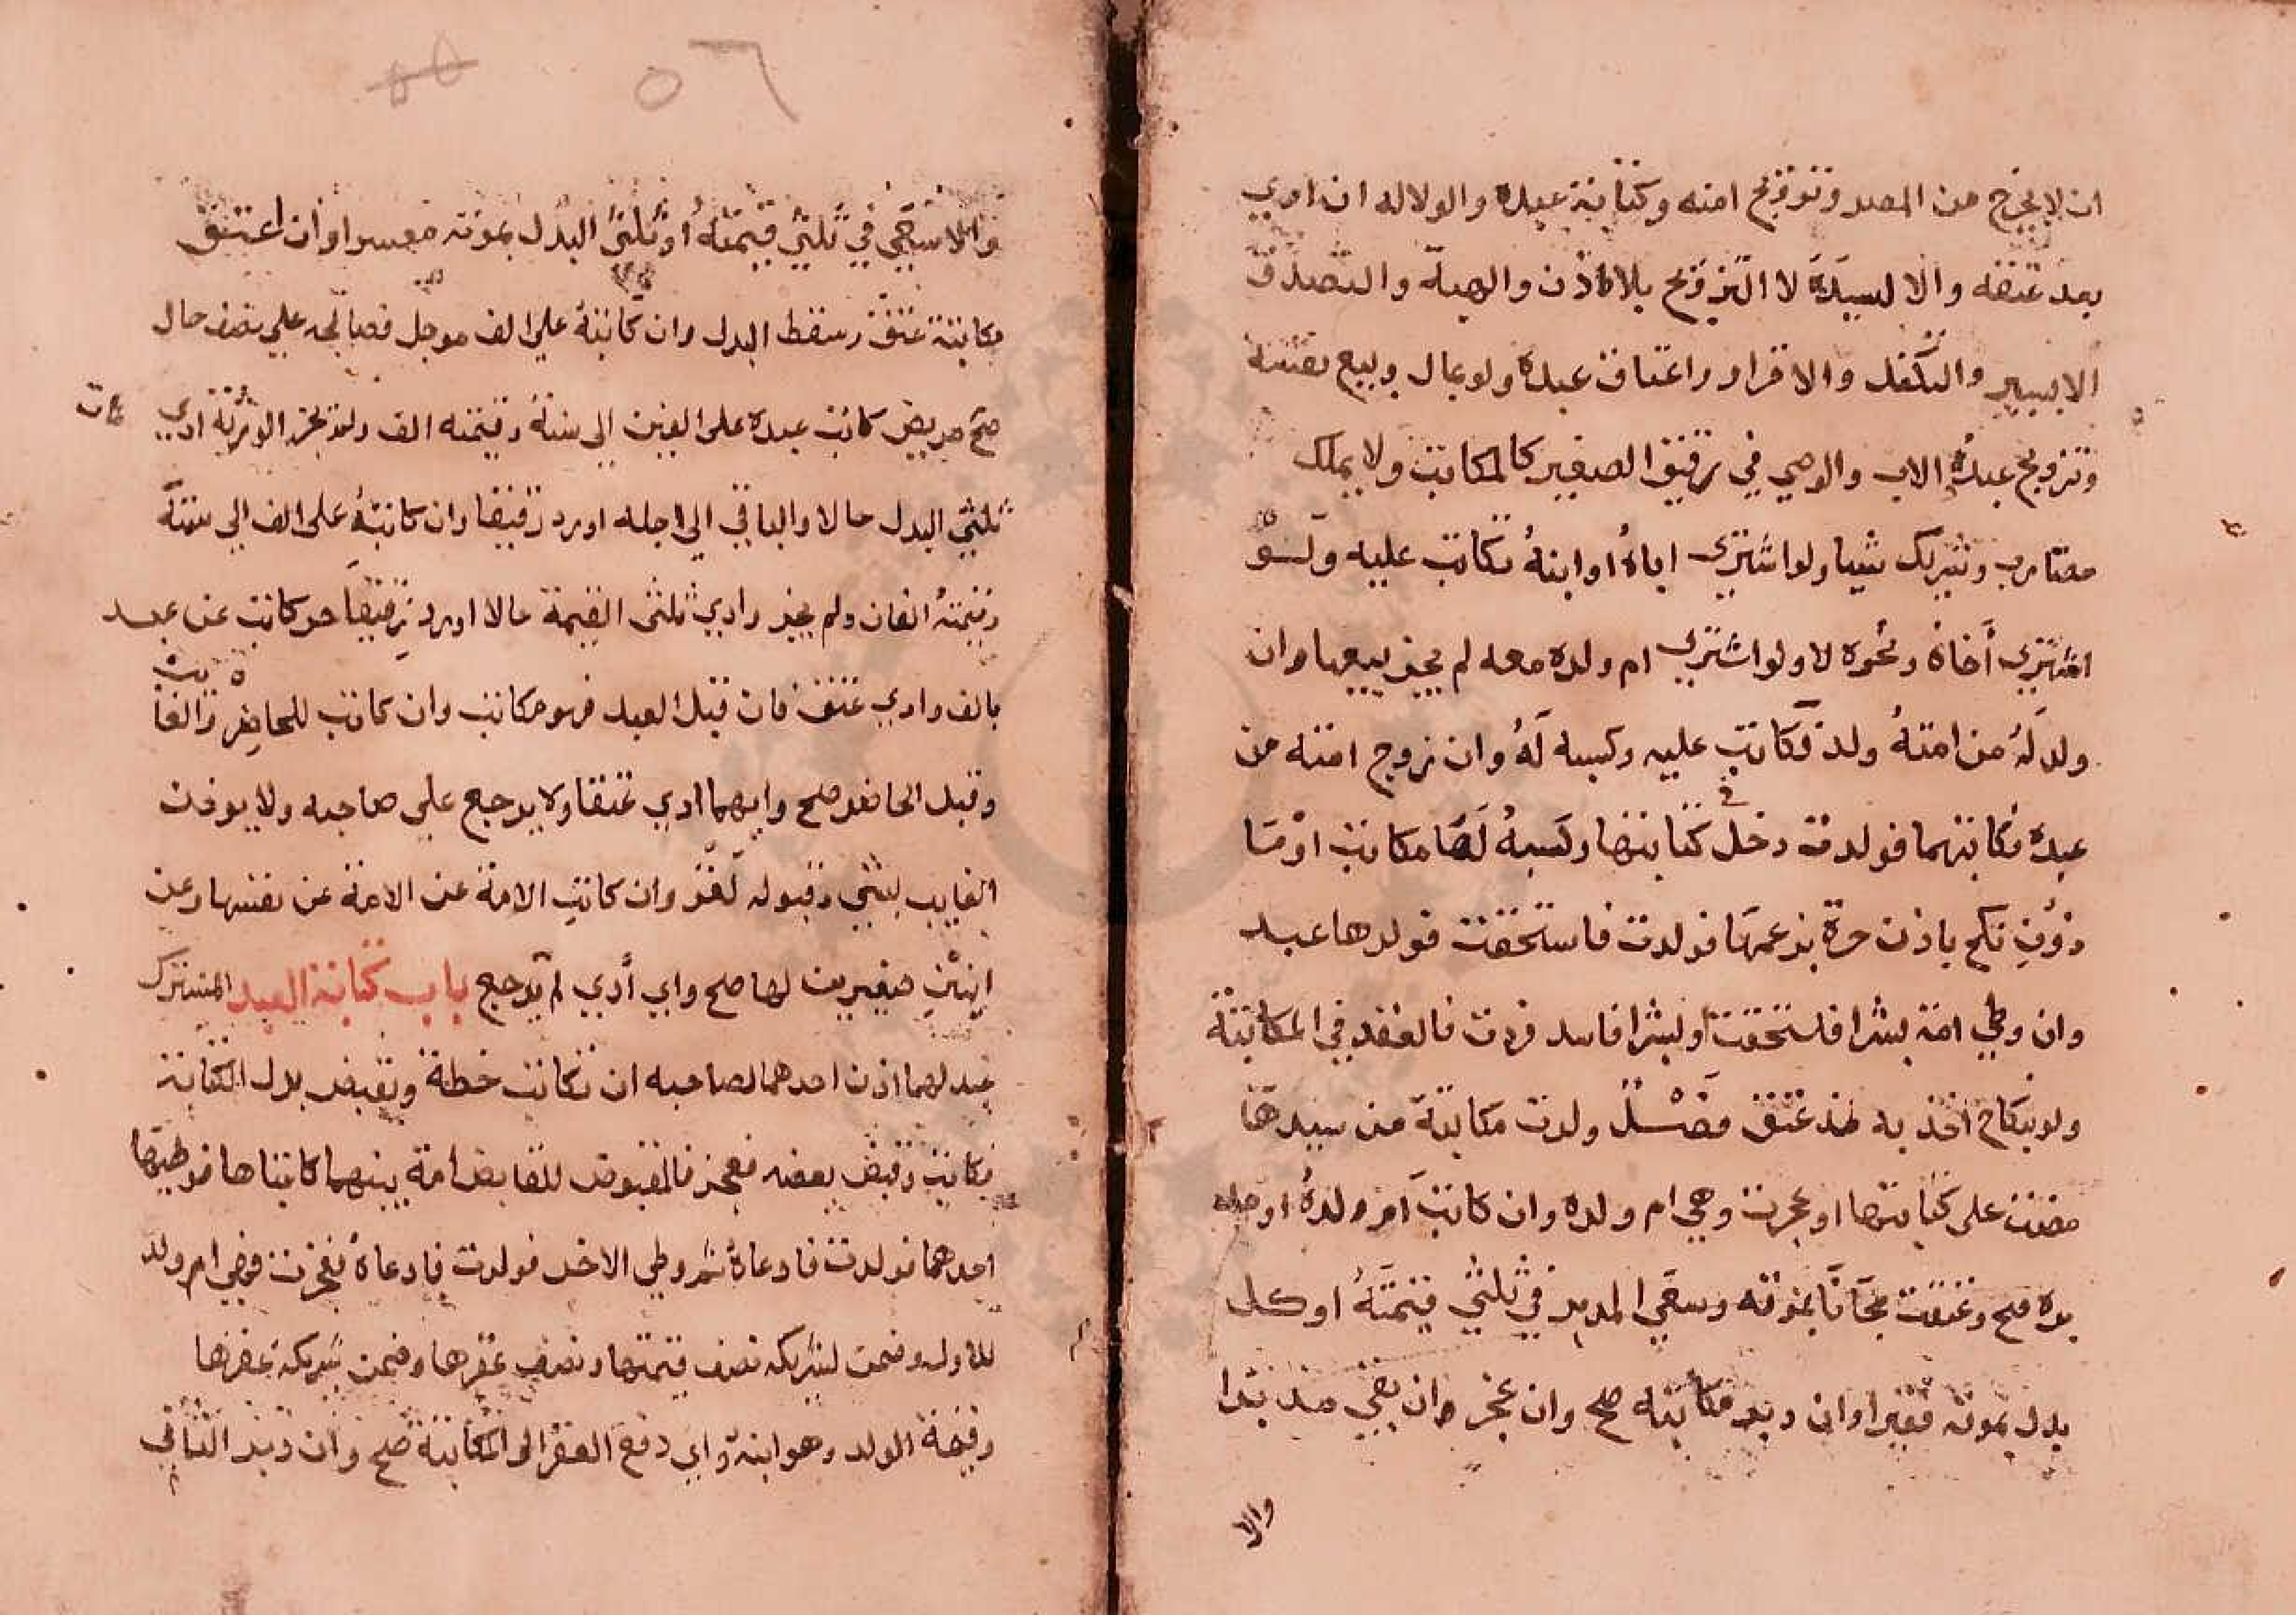 ان لا يخرج من المصر وتزويج امته وكتابة عبده والولا له ان ادي
بعد عتقه والا لسيده لا التزويج بلا اذن والهبة والتصدق
الا بيسير والتكفل والاقراض واعتاق عبده ولو بمال وبيع نفسه
وتزويج عبده الاب والوصي في رقيق الصغير كالمكاتب ولا يملك
مضارب وشريك شيا ولو اشتري اباه او ابنه تكاتب عليه ولو
اشتري أخاه ونحوه لا ولو اشتري ام ولده معه لم يجز بيعها وان
ولد له من امته ولد تكاتب عليه وكسبه له وان زوج امته من
عبده فكاتبهما فولدت دخل في كتابتها وكسبه لها مكاتب او ما
ذون نكح باذن حرة بزعمها فولدت فاستحقت فولدها عبد
وان وطي امة بشرا فاستحقت او بشرا فاسد فردت فالعقد في المكاتبة
ولو بنكاح اخذ به مذ عتق فصل ولدت مكاتبة من سيدها
مضت على كتابتها او عجزت وهي ام ولده وان كاتب ام ولده او مد
بره صح وعتقت مجانا بموته وسعي المدبر في ثلثي قيمته او كل
بدل بموته فقيرا وان دبر مكاتبه صح وان عجز وان بقي مدبرا
والا
٥٦
٥٥
والا سعي في ثلثي قيمته أو ثلثي البدل بموته معسرا وان اعتق
مكاتبه عتق وسقط البدل وان كاتبه علي الف موجل فصالحه علي نصف حال
صح مريض كاتب عبده على الفين الي سنة وقيمته الف ولم تجز الورثة ادي
ثلثي البدل حالا والباقي الي اجله او رد رقيقا وان كاتبه على الف الي سنة
وقيمته الفان ولم يجز وادي ثلثى القيمة حالا او رد رقيقا حر كاتب عن عبد
بالف وادي عتق فان قبل العبد فهو مكاتب وان كاتب الحاضر والغايب
وقبل الحاضر صح وايهما ادي عتقا ولا يرجع علي صاحبه ولا يوخذ
الغايب بشي وقبوله لغو وان كاتب الامة عن الامة عن نفسها وعن
ابنين صغيرين لها صح واي أدي لم يرجع باب كتابة العبد المشترك
عبد لهما اذن احدهما لصاحبه ان يكاتب حظه ويقبض بدل الكتابة
فكاتب وقبض بعضه فعجز فالمقبوض للقابض امة بينهما كاتباها فوطيها
احدهما فولدت فادعاه ثم وطي الاخر فولدت فادعاه فعجزت فهي ام ولد
للاول وضمن لشريكه نصف قيمتها ونصف عقرها وضمن شريكه عقرها
وقيمة الولد وهو ابنه واي دفع العقر الى المكاتبة صح وان دبر الثاني